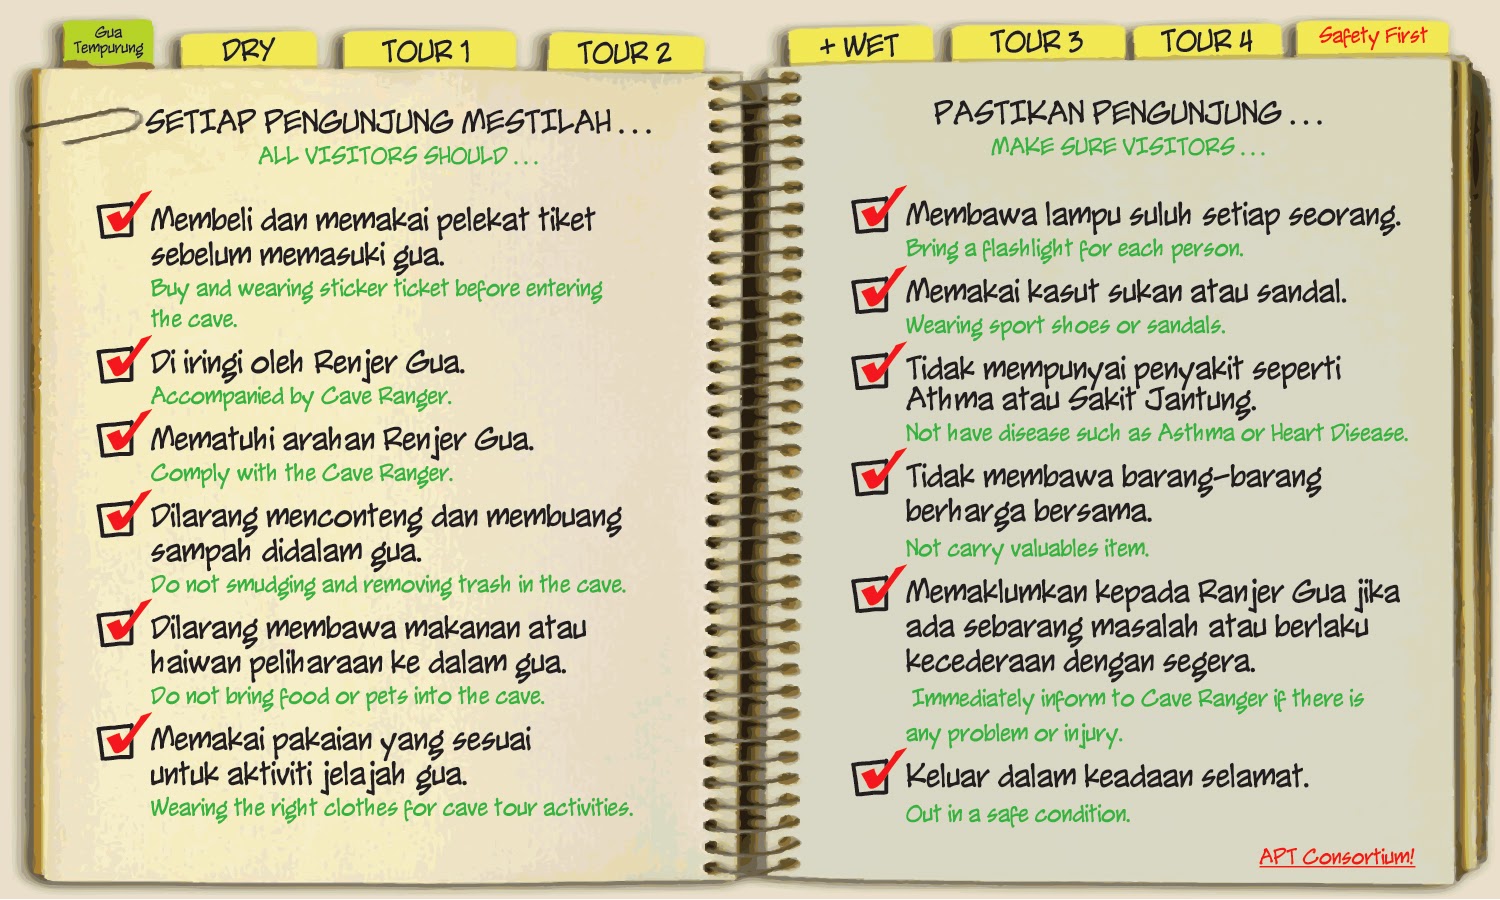 Gua
Tempurung
DRY
TOUR 1
TOUR 2
+ WET
TOUR 3
TOUR 4
Safety First
SETIAP PENGUNJUNG MESTILAH . . .
ALL VISITORS SHOULD . . .
Membeli dan memakai pelekat tiket
sebelum memasuki gua.
Buy and wearing sticker ticket before entering
the cave.
Di iringi oleh Renjer Gua.
Accompanied by Cave Ranger.
Mematuhi arahan Renjer Gua.
Comply with the Cave Ranger.
Dilarang menconteng dan membuang
sampah didalam gua.
Do not smudging and removing trash in the cave.
Dilarang membawa makanan atau
haiwan peliharaan ke dalam gua.
Do not bring food or pets into the cave.
Memakai pakaian yang sesuai
untuk aktiviti jelajah gua.
Wearing the right clothes for cave tour activities.
PASTIKAN PENGUNJUNG . . .
MAKE SURE VISITORS . . .
Membawa lampu suluh setiap seorang.
Bring a flashlight for each person.
Memakai kasut sukan atau sandal.
Wearing sport shoes or sandals.
Tidak mempunyai penyakit seperti
Athma atau Sakit Jantung.
Not have disease such as Asthma or Heart Disease.
Tidak membawa barang-barang
berharga bersama.
Not carry valuables item.
Memaklumkan kepada Ranjer Gua jika
ada sebarang masalah atau berlaku
kecederaan dengan segera.
Immediately inform to Cave Ranger if there is
any problem or injury.
Keluar dalam keadaan selamat.
Out in a safe condition.
APT Consortium!